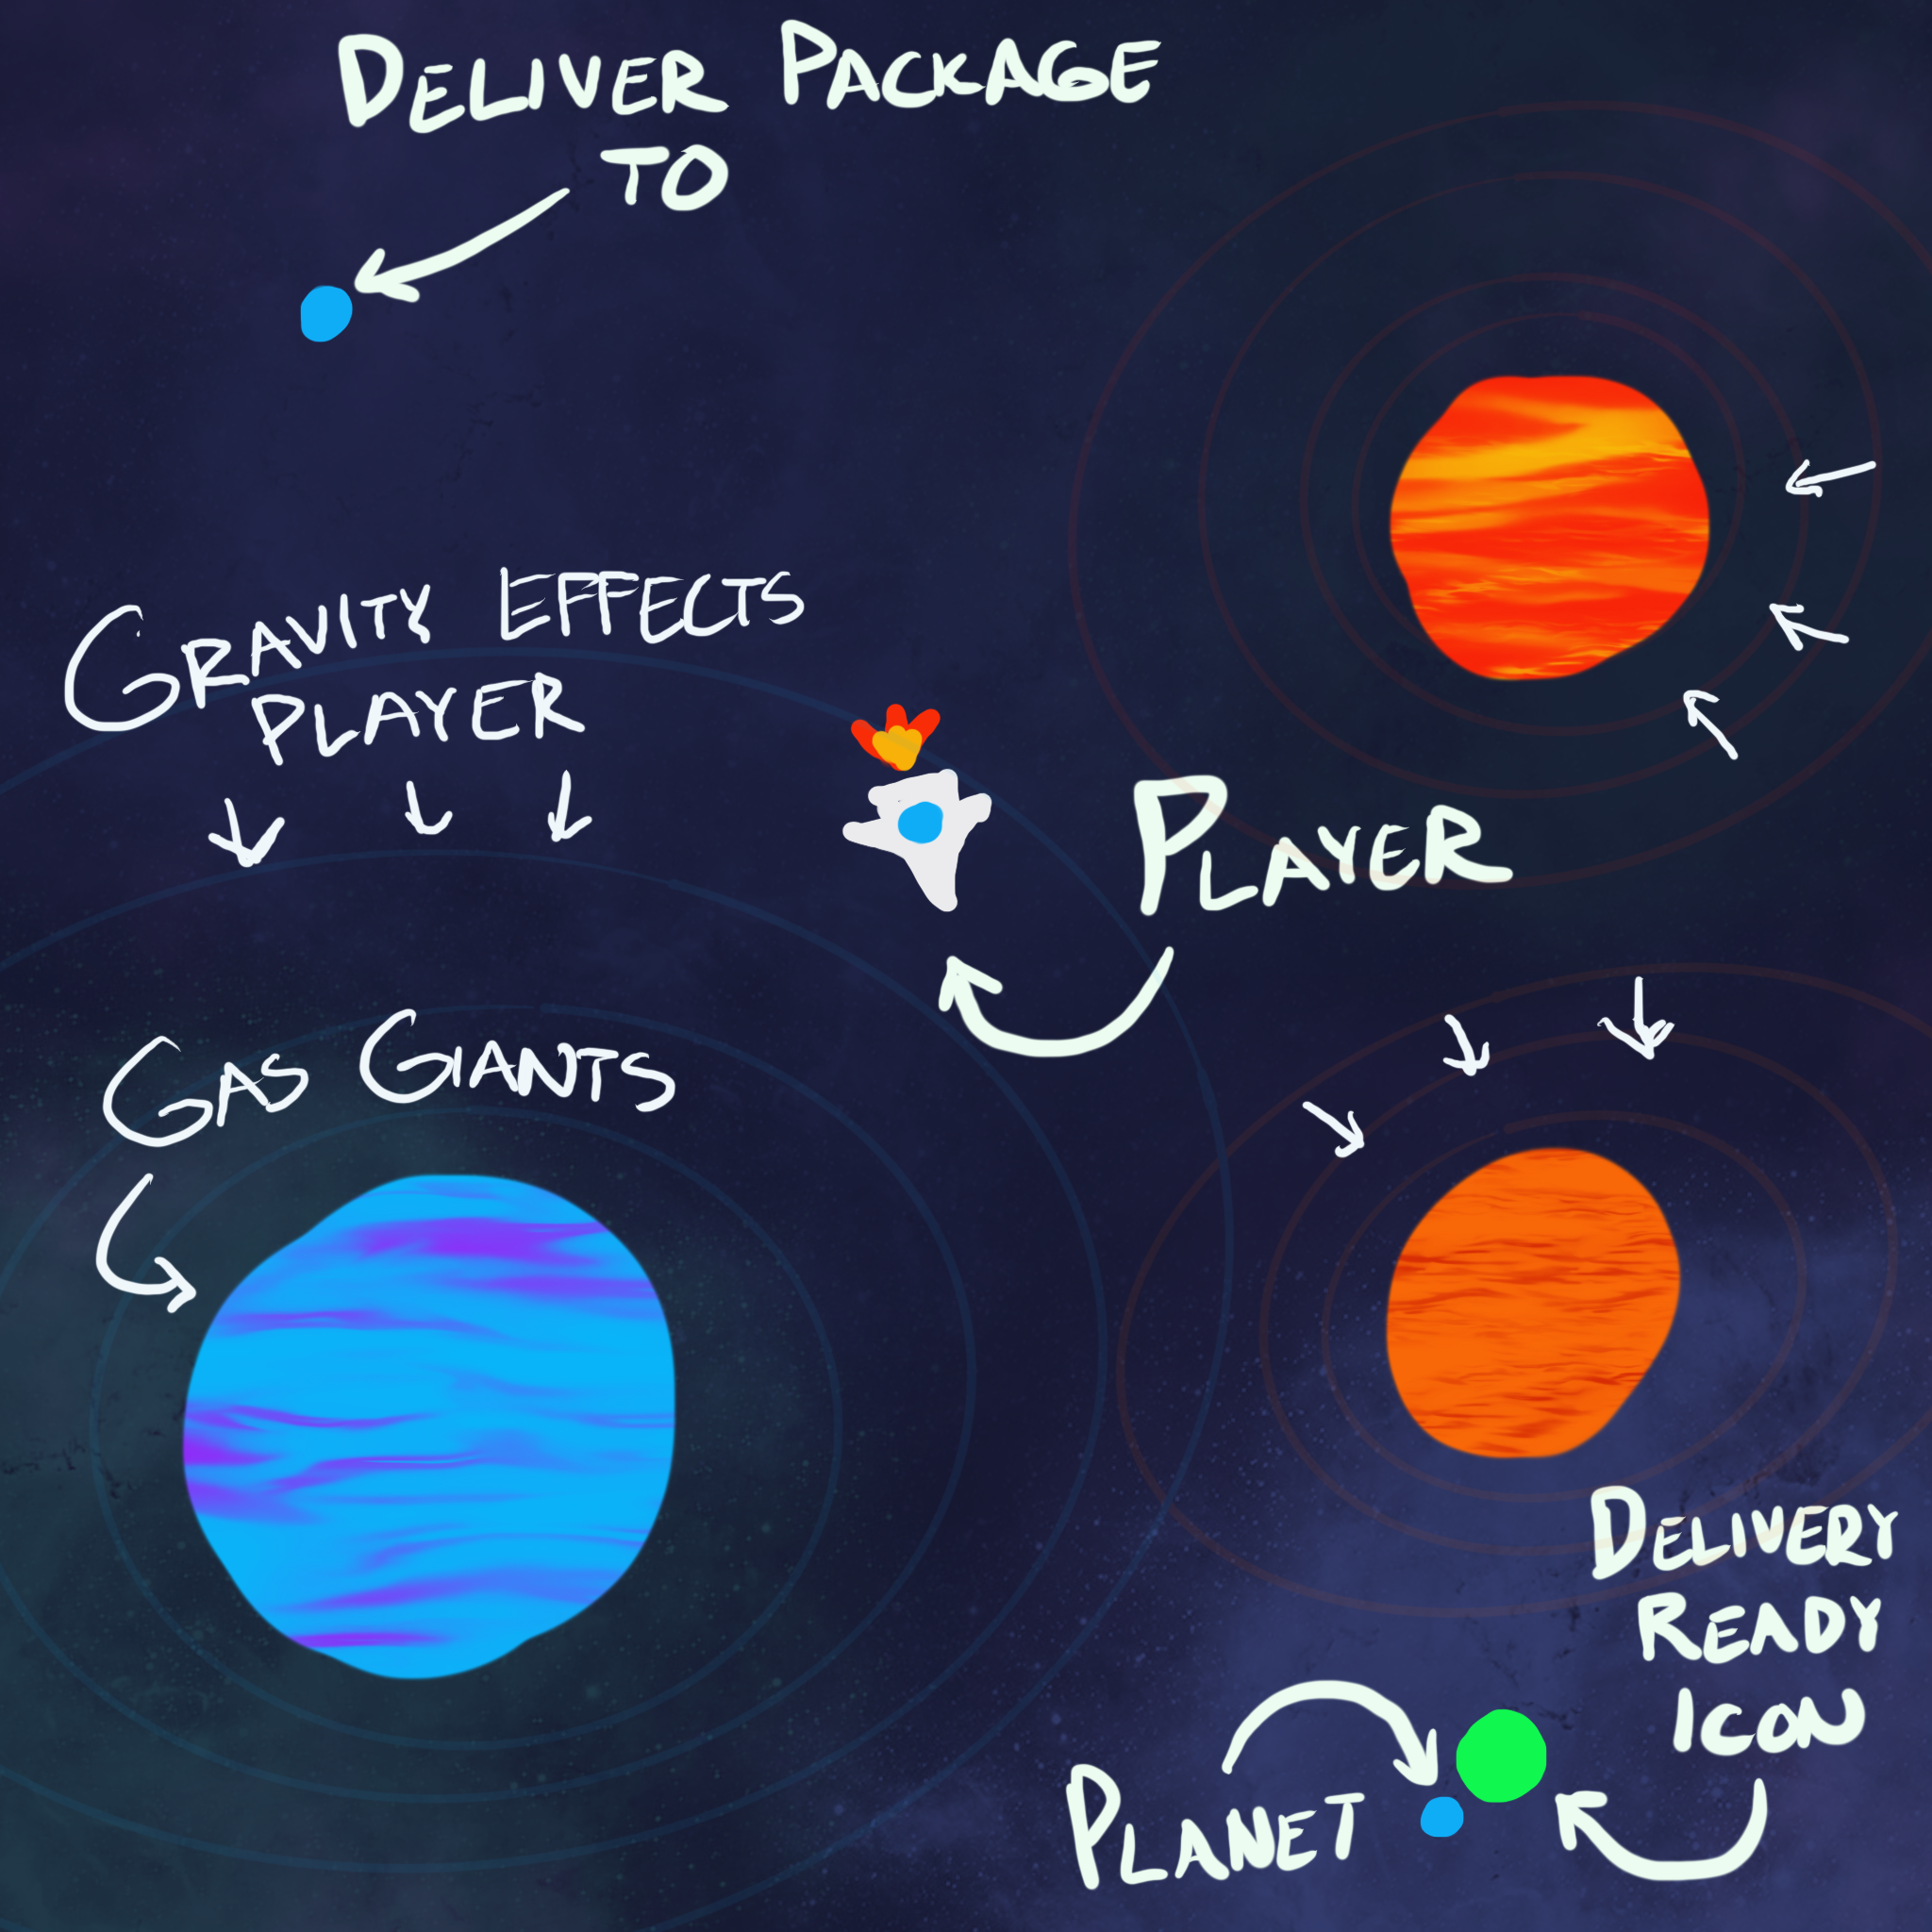 DELIVER PACKAGE
TO
GRAVITY EFFECTS
PLAYER
PLAYER
GAS GIANTS
DELIVERY
READY
ICON
PLANET